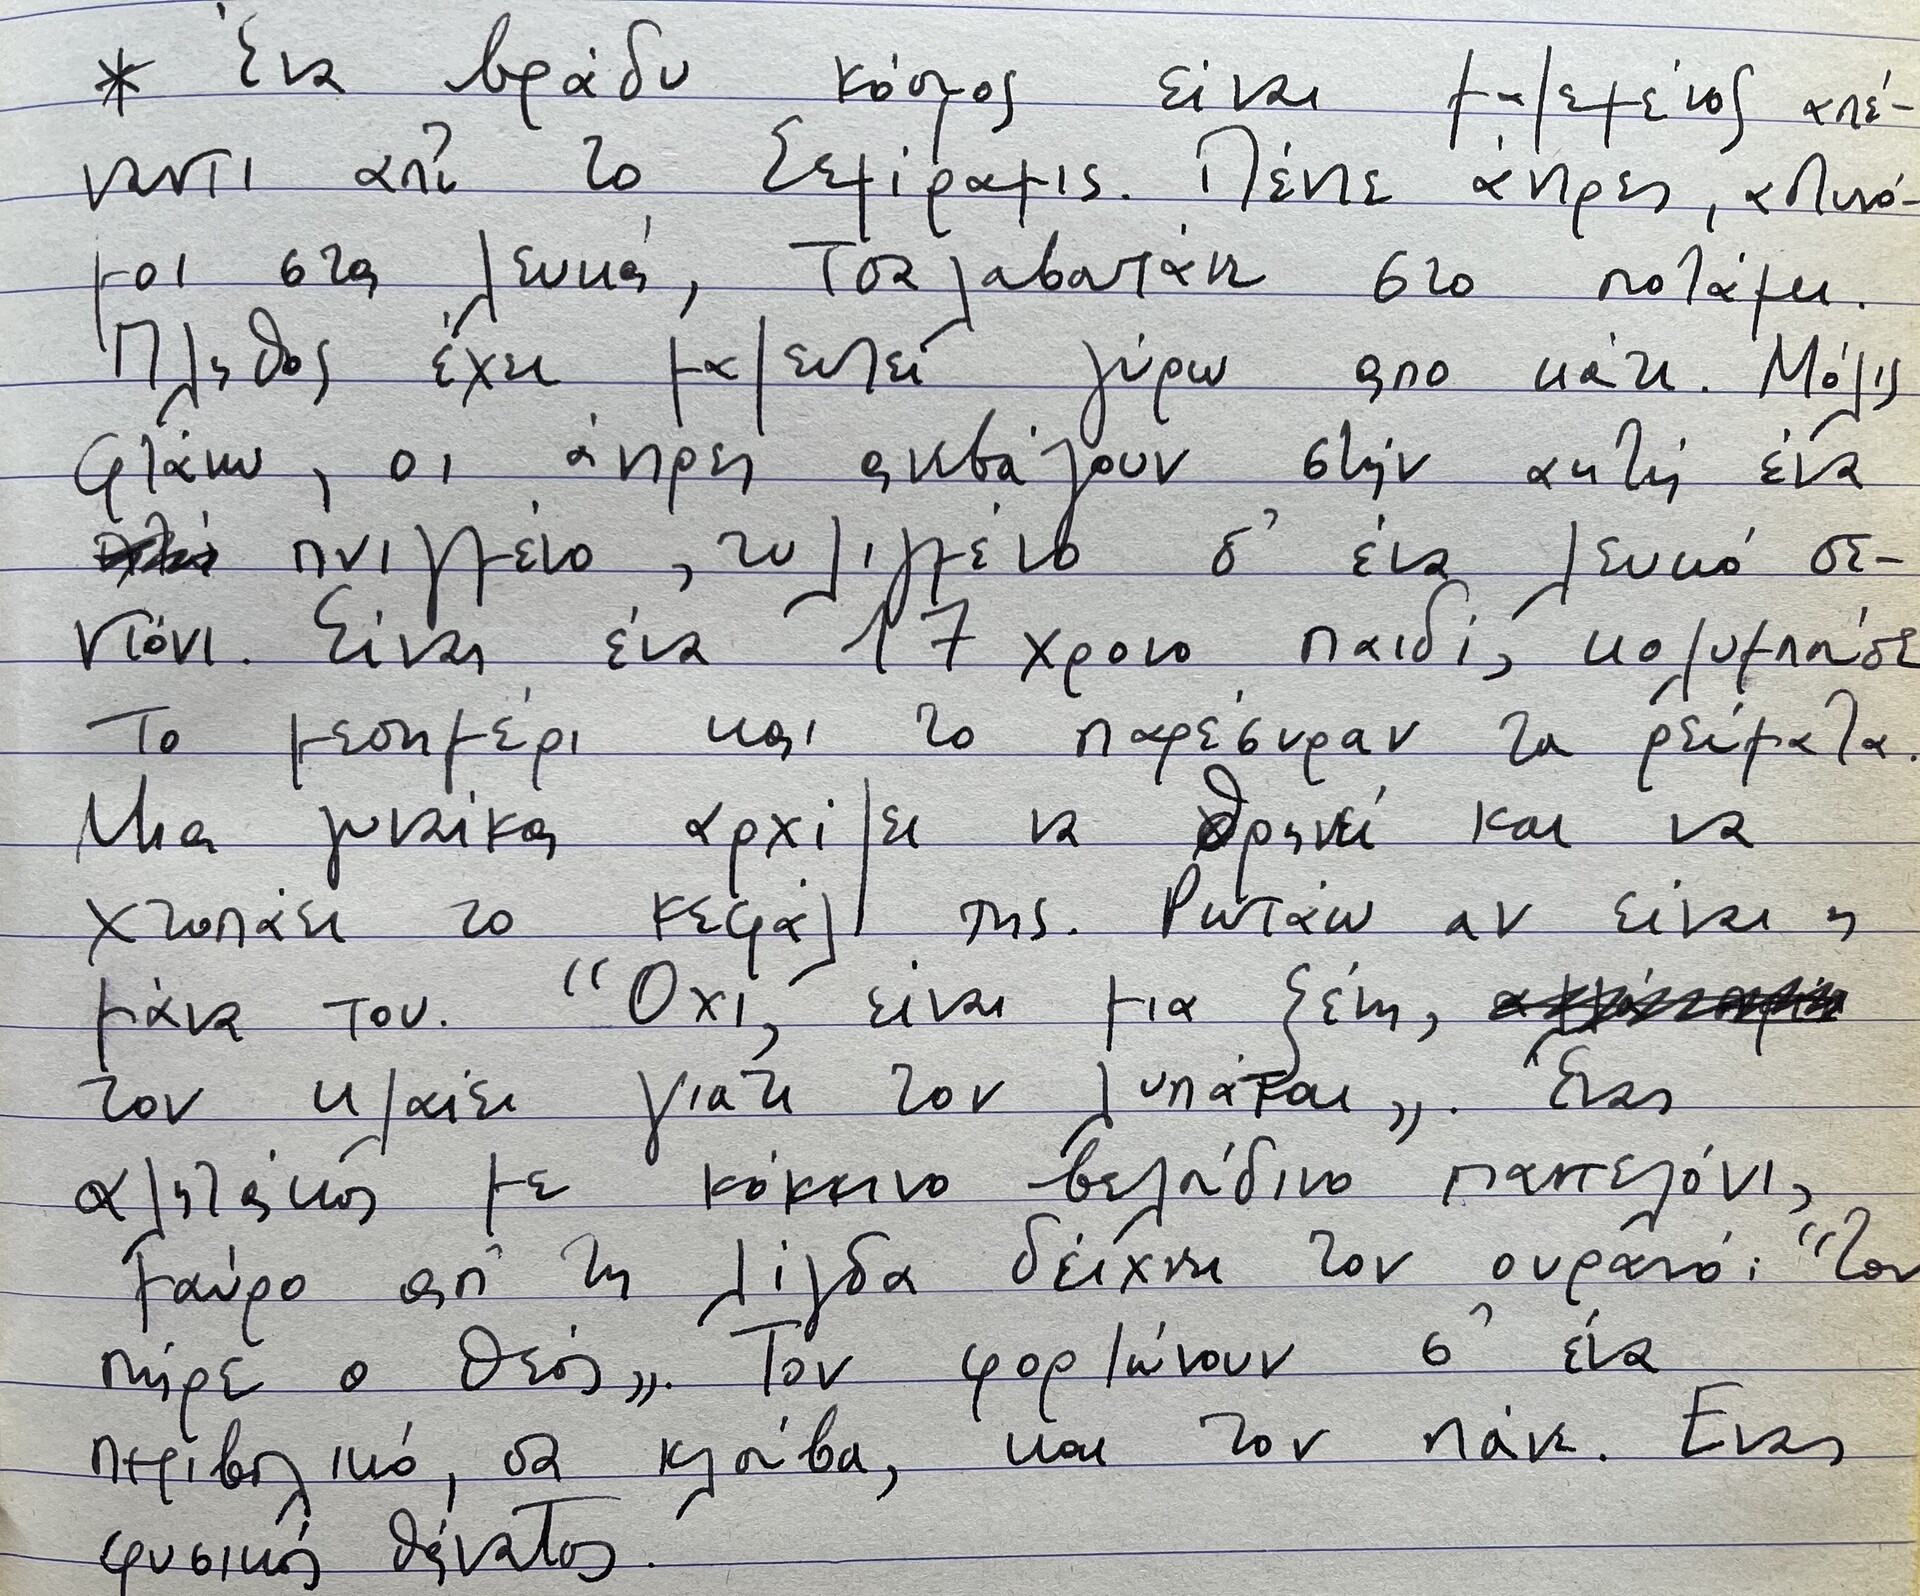 * Ένα βράδυ κόσμος είναι μαζεμένος απέ-
ναντι απ' το Σεμίραμις. Πέντε άντρες, αστυνό-
μοι στα λευκά, τσαλαβουτάνε στο ποτάμι.
Πλήθος έχει μαζευτεί γύρω από κάτι. Μόλις
φτάνω, οι άντρες ακβάζουν στην ακτή ένα
πνιγμένο, τυλιγμένο σ' ένα λευκό σε-
ντόνι. Είναι ένα 17 χρονο παιδί, κολυμπούσε
το μεσημέρι και το παρέσυραν τα ρεύματα.
Μια γυναίκα αρχίζει να θρηνεί και να
χτυπάει το κεφάλι της. Ρωτάω αν είναι η
μάνα του. "Όχι, είναι μια ξένη,
τον κλαίει γιατί τον λυπάται". Ένας
αλητάκος με κόκκινο βελούδινο παντελόνι,
μαύρο απ' τη λίγδα δείχνει τον ουρανό: "τον
πήρε ο Θεός". Τον φορτώνουν σ' ένα
περιπολικό, σα κλούβα, και τον πάνε. Ένας
φυσικός θάνατος.